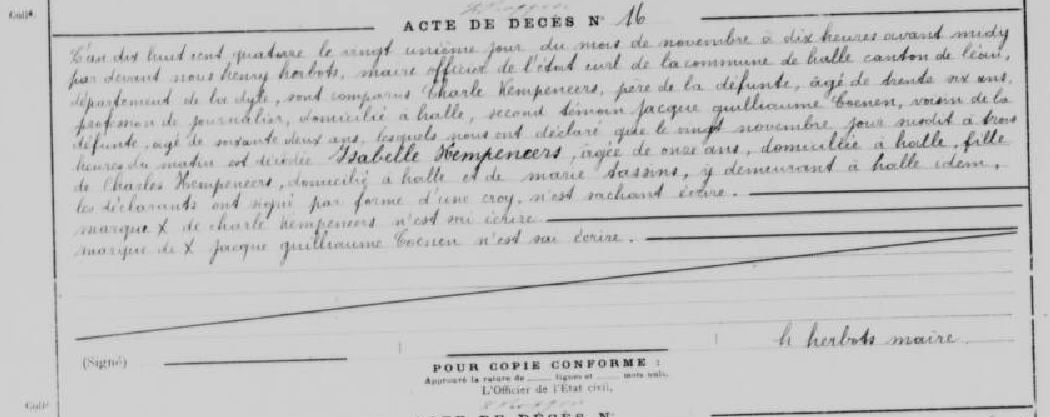 ACTE DE DÉCÈS N° 16
L'an dix huit cent quatorze le vingt unième jour du mois de novembre à dix heures avant midy
par devant nous henry herbots, maire officier de l'état civil de la commune de halle canton de léau,
département de la dyle, sont comparus Charle Hempeneers, père de la défunte, âgé de trente six ans,
profession de journalier, domicilié à halle, second témoin Jacque guilliaume Coenen, voisin de la
défunte, agé de soixante deux ans, lesquels nous ont déclaré que le vingt novembre jour susdit à trois
heures du matin est décédée Isabelle Hempeneers, âgée de onze ans, domiciliée à halle, fille
de Charles Hempeneers, domicilié à halle et de marie Tassins, y demeurant à halle idem,
les déclarants ont signé par forme d'une croy, n'est sachant écrire.
marque X de charle hempeneers n'est sai écrire
marque de X Jacque guilliaume Coenen n'est sai écrire.
h herbots maire.
(Signé)
POUR COPIE CONFORME :
Approuvé la rature de lignes et mots nuls.
L'Officier de l'État civil,
ACTE DE DÉCÈS N°